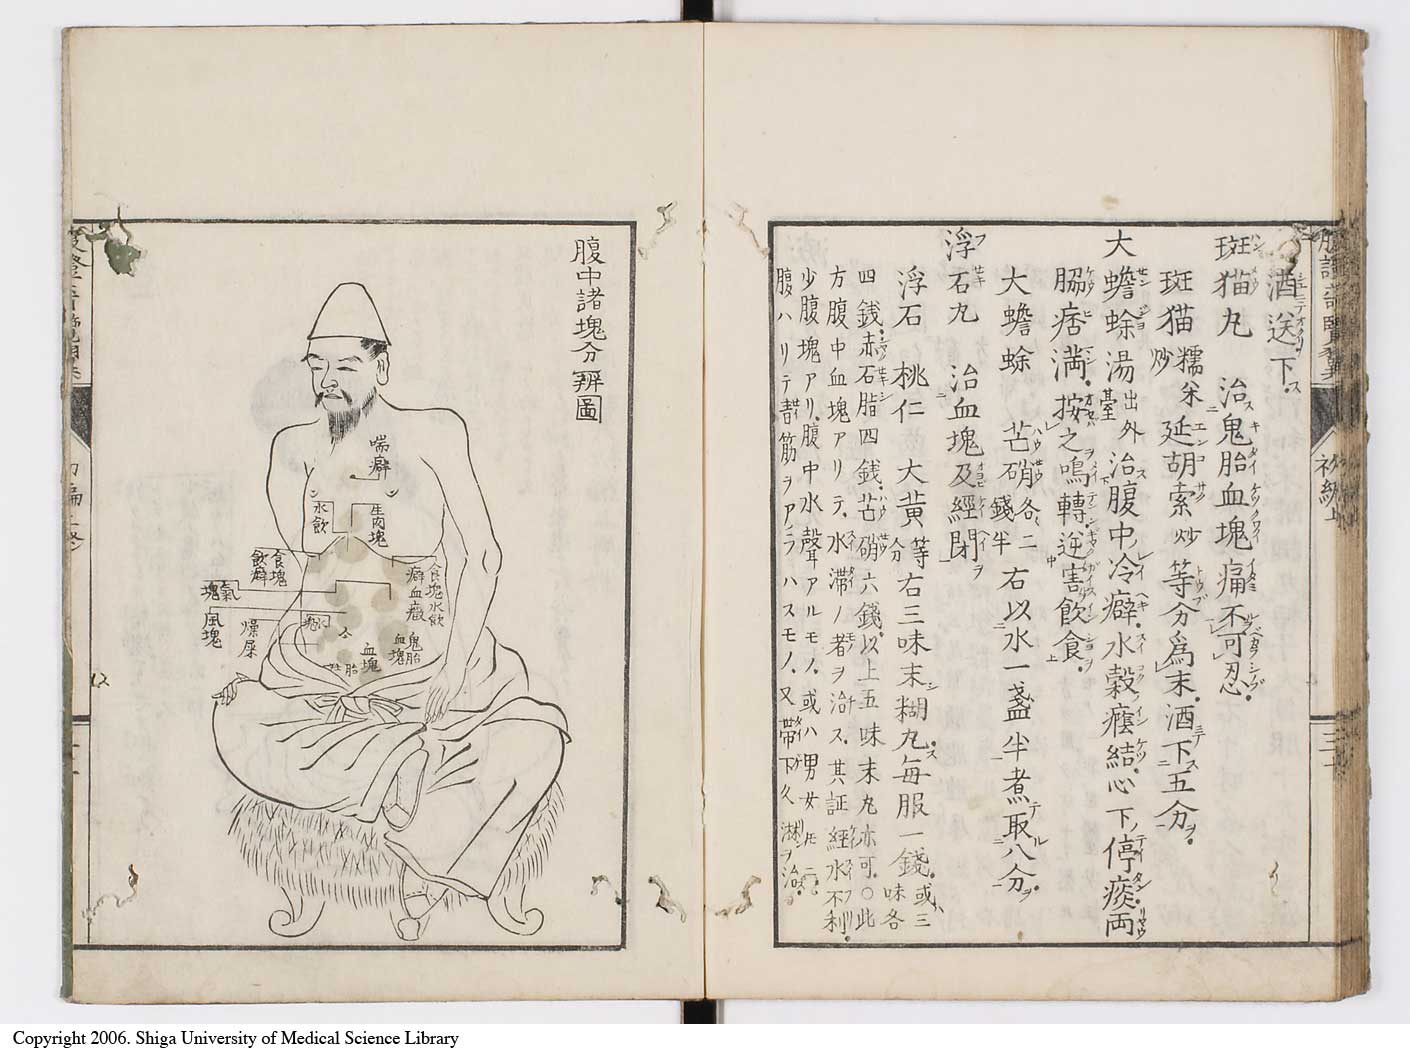 酒送下ス
斑猫丸 治鬼胎血塊痛不可忍
斑猫 糯米炒 延胡索炒 等分為末酒下五分
大蟾蜍湯 出外臺 治腹中冷癖水穀癊結心下停痰両
脇痞満按之鳴轉逆害飲食
大蟾蜍 芒硝各二錢半 右以水一盞半煮取八分
浮石丸 治血塊及經閉
浮石 桃仁 大黄等分 右三味末糊丸毎服一錢或三味各
四錢赤石脂四錢芒硝六錢以上五味末丸亦可○此
方腹中血塊アリテ水滞ノ者ヲ治ス其証經水不利
少腹塊アリ腹中水聲アルモノ或ハ男女𪜈ニ
腹ハリテ青筋ヲアラハスモノ又帯下久淋ヲ治ス
腹中諸塊分辨圖
喘癖
生肉塊
水飲
食塊
飲癖
食塊水飲
癖血癥
氣塊
風塊
燥屎
血塊
鬼胎
血塊
Copyright 2006. Shiga University of Medical Science Library